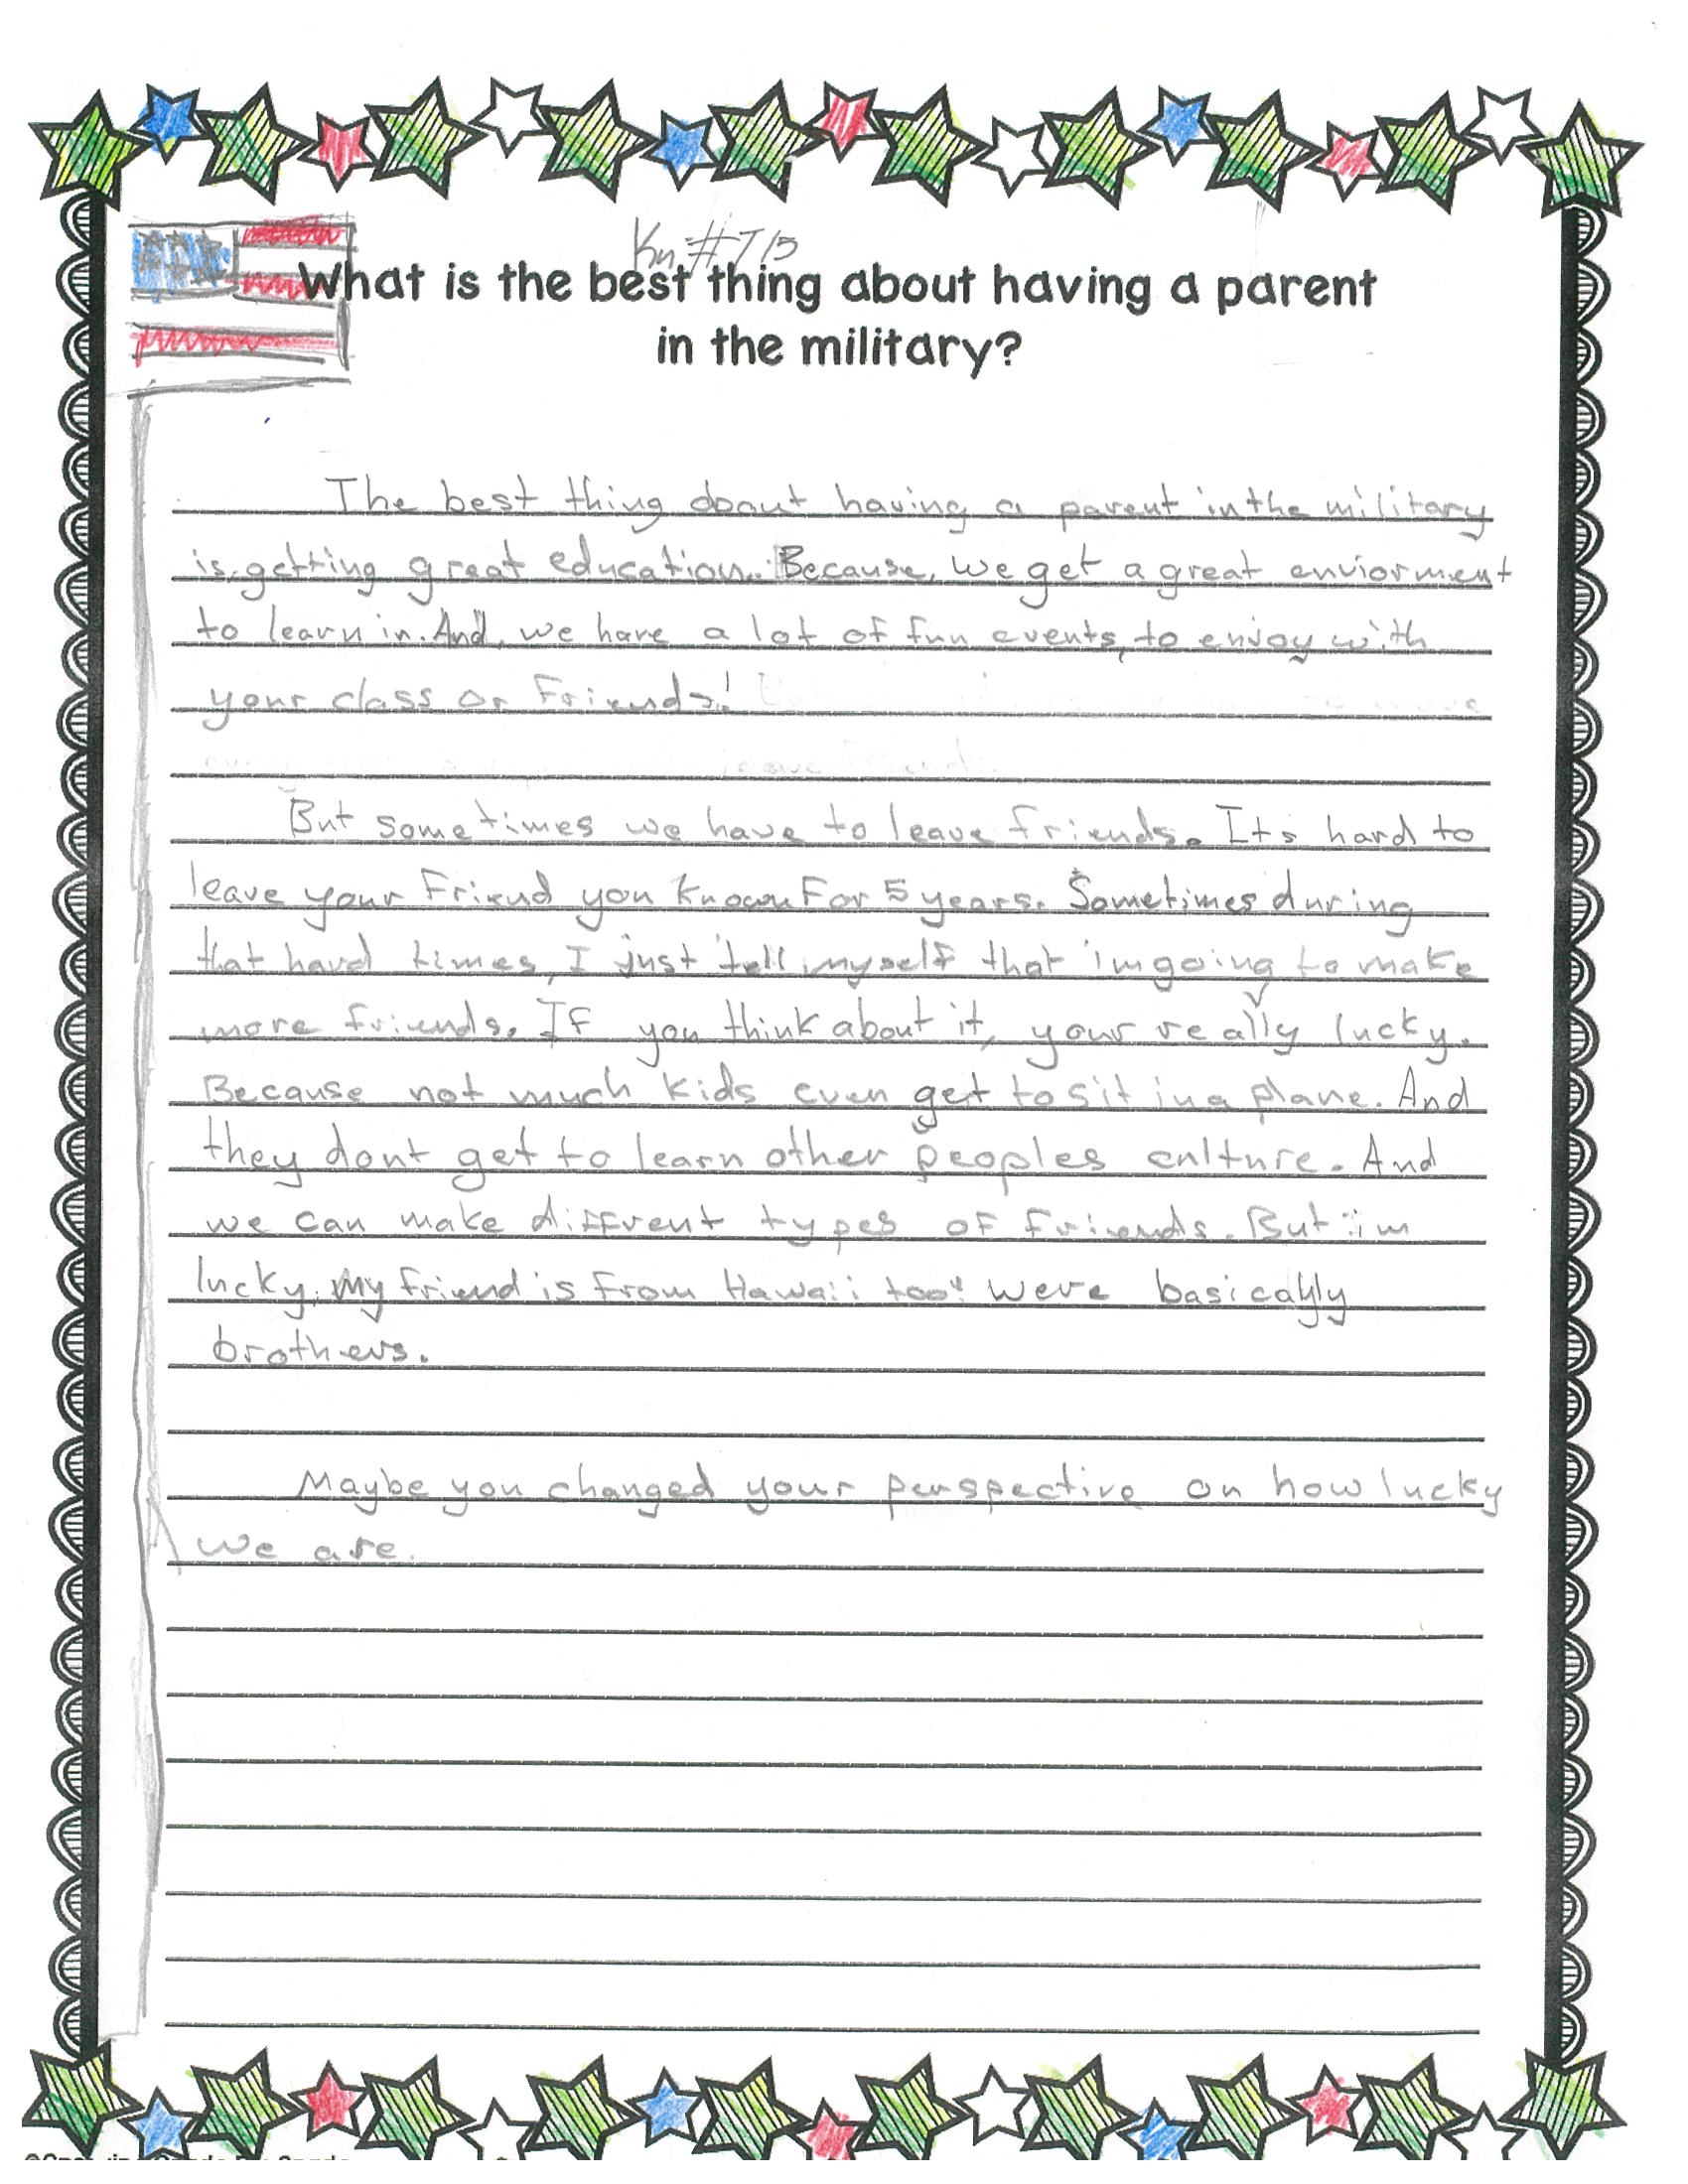 Kn #713
What is the best thing about having a parent
in the military?
The best thing about having a parent in the military
is getting great education. Because, we get a great enviorment
to learn in. And, we have a lot of fun events, to enjoy with
your class or Friends!
leave friend
But sometimes we have to leave friends. Its hard to
leave your Friend you known For 5 years. Sometimes during
that hard times, I just tell myself that im going to make
more friends. If you think about it, your really lucky.
Because not much kids even get to sit in a plane. And
they dont get to learn other peoples culture. And
we can make diffrent types of friends. But im
lucky, My friend is From Hawaii too! Were basically
brothers.
Maybe you changed your perspective on how lucky
we are.